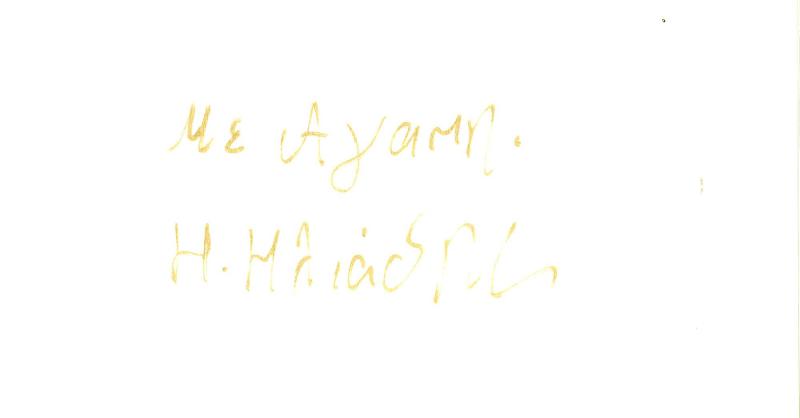 Με Αγαπη.
Η. Ηλιάδης